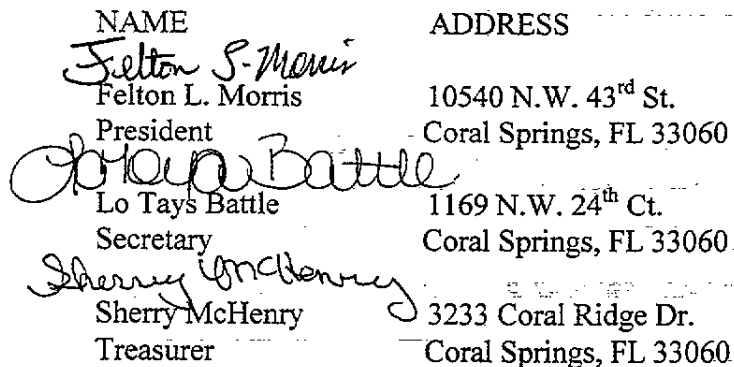 NAME ADDRESS
Felton S. Morris
Felton L. Morris 10540 N.W. 43rd St.
President Coral Springs, FL 33060
LoTaya Battle
Lo Tays Battle 1169 N.W. 24th Ct.
Secretary Coral Springs, FL 33060
Sherry McHenry
Sherry McHenry 3233 Coral Ridge Dr.
Treasurer Coral Springs, FL 33060